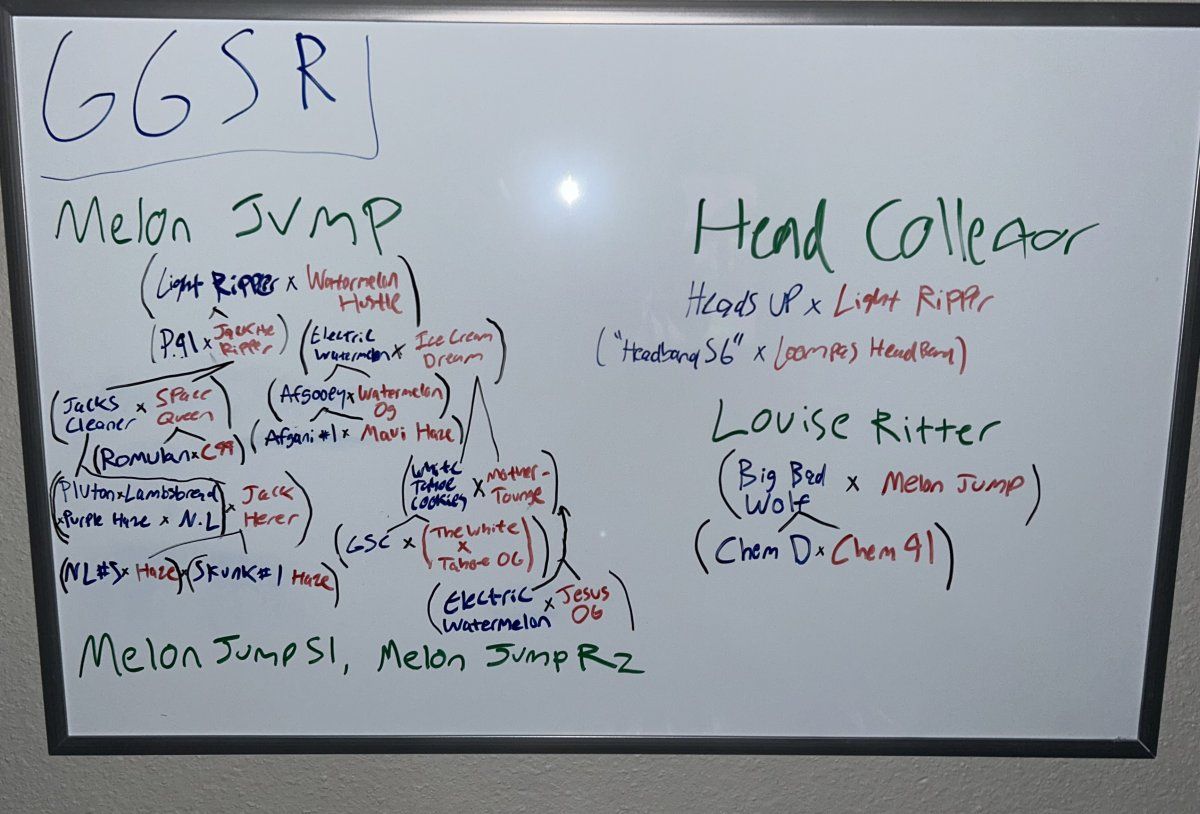 GGSR
Melon Jump
(Light Ripper x Watermelon Hustle)
(P.91 x Jack the Ripper)
(Electric Watermelon x Ice Cream Dream)
(Jacks Cleaner x Space Queen)
(Afgooey x Watermelon Og)
(Romulan x C99)
(Afgani #1 x Maui Haze)
(White Tahoe Cookies x Mother-Tounge)
((Pluton x Lambsbread x Purple Haze x N.L) x Jack Herer)
(GSC x (The White x Tahoe OG))
(NL#5 x Haze) x (Skunk #1 Haze)
(Electric Watermelon x Jesus OG)
Melon Jump S1, Melon Jump R2
Head Collector
Heads UP x Light Ripper
("Headbang S6" x Loompas HeadBand)
Louise Ritter
(Big Bad Wolf x Melon Jump)
(Chem D x Chem 91)